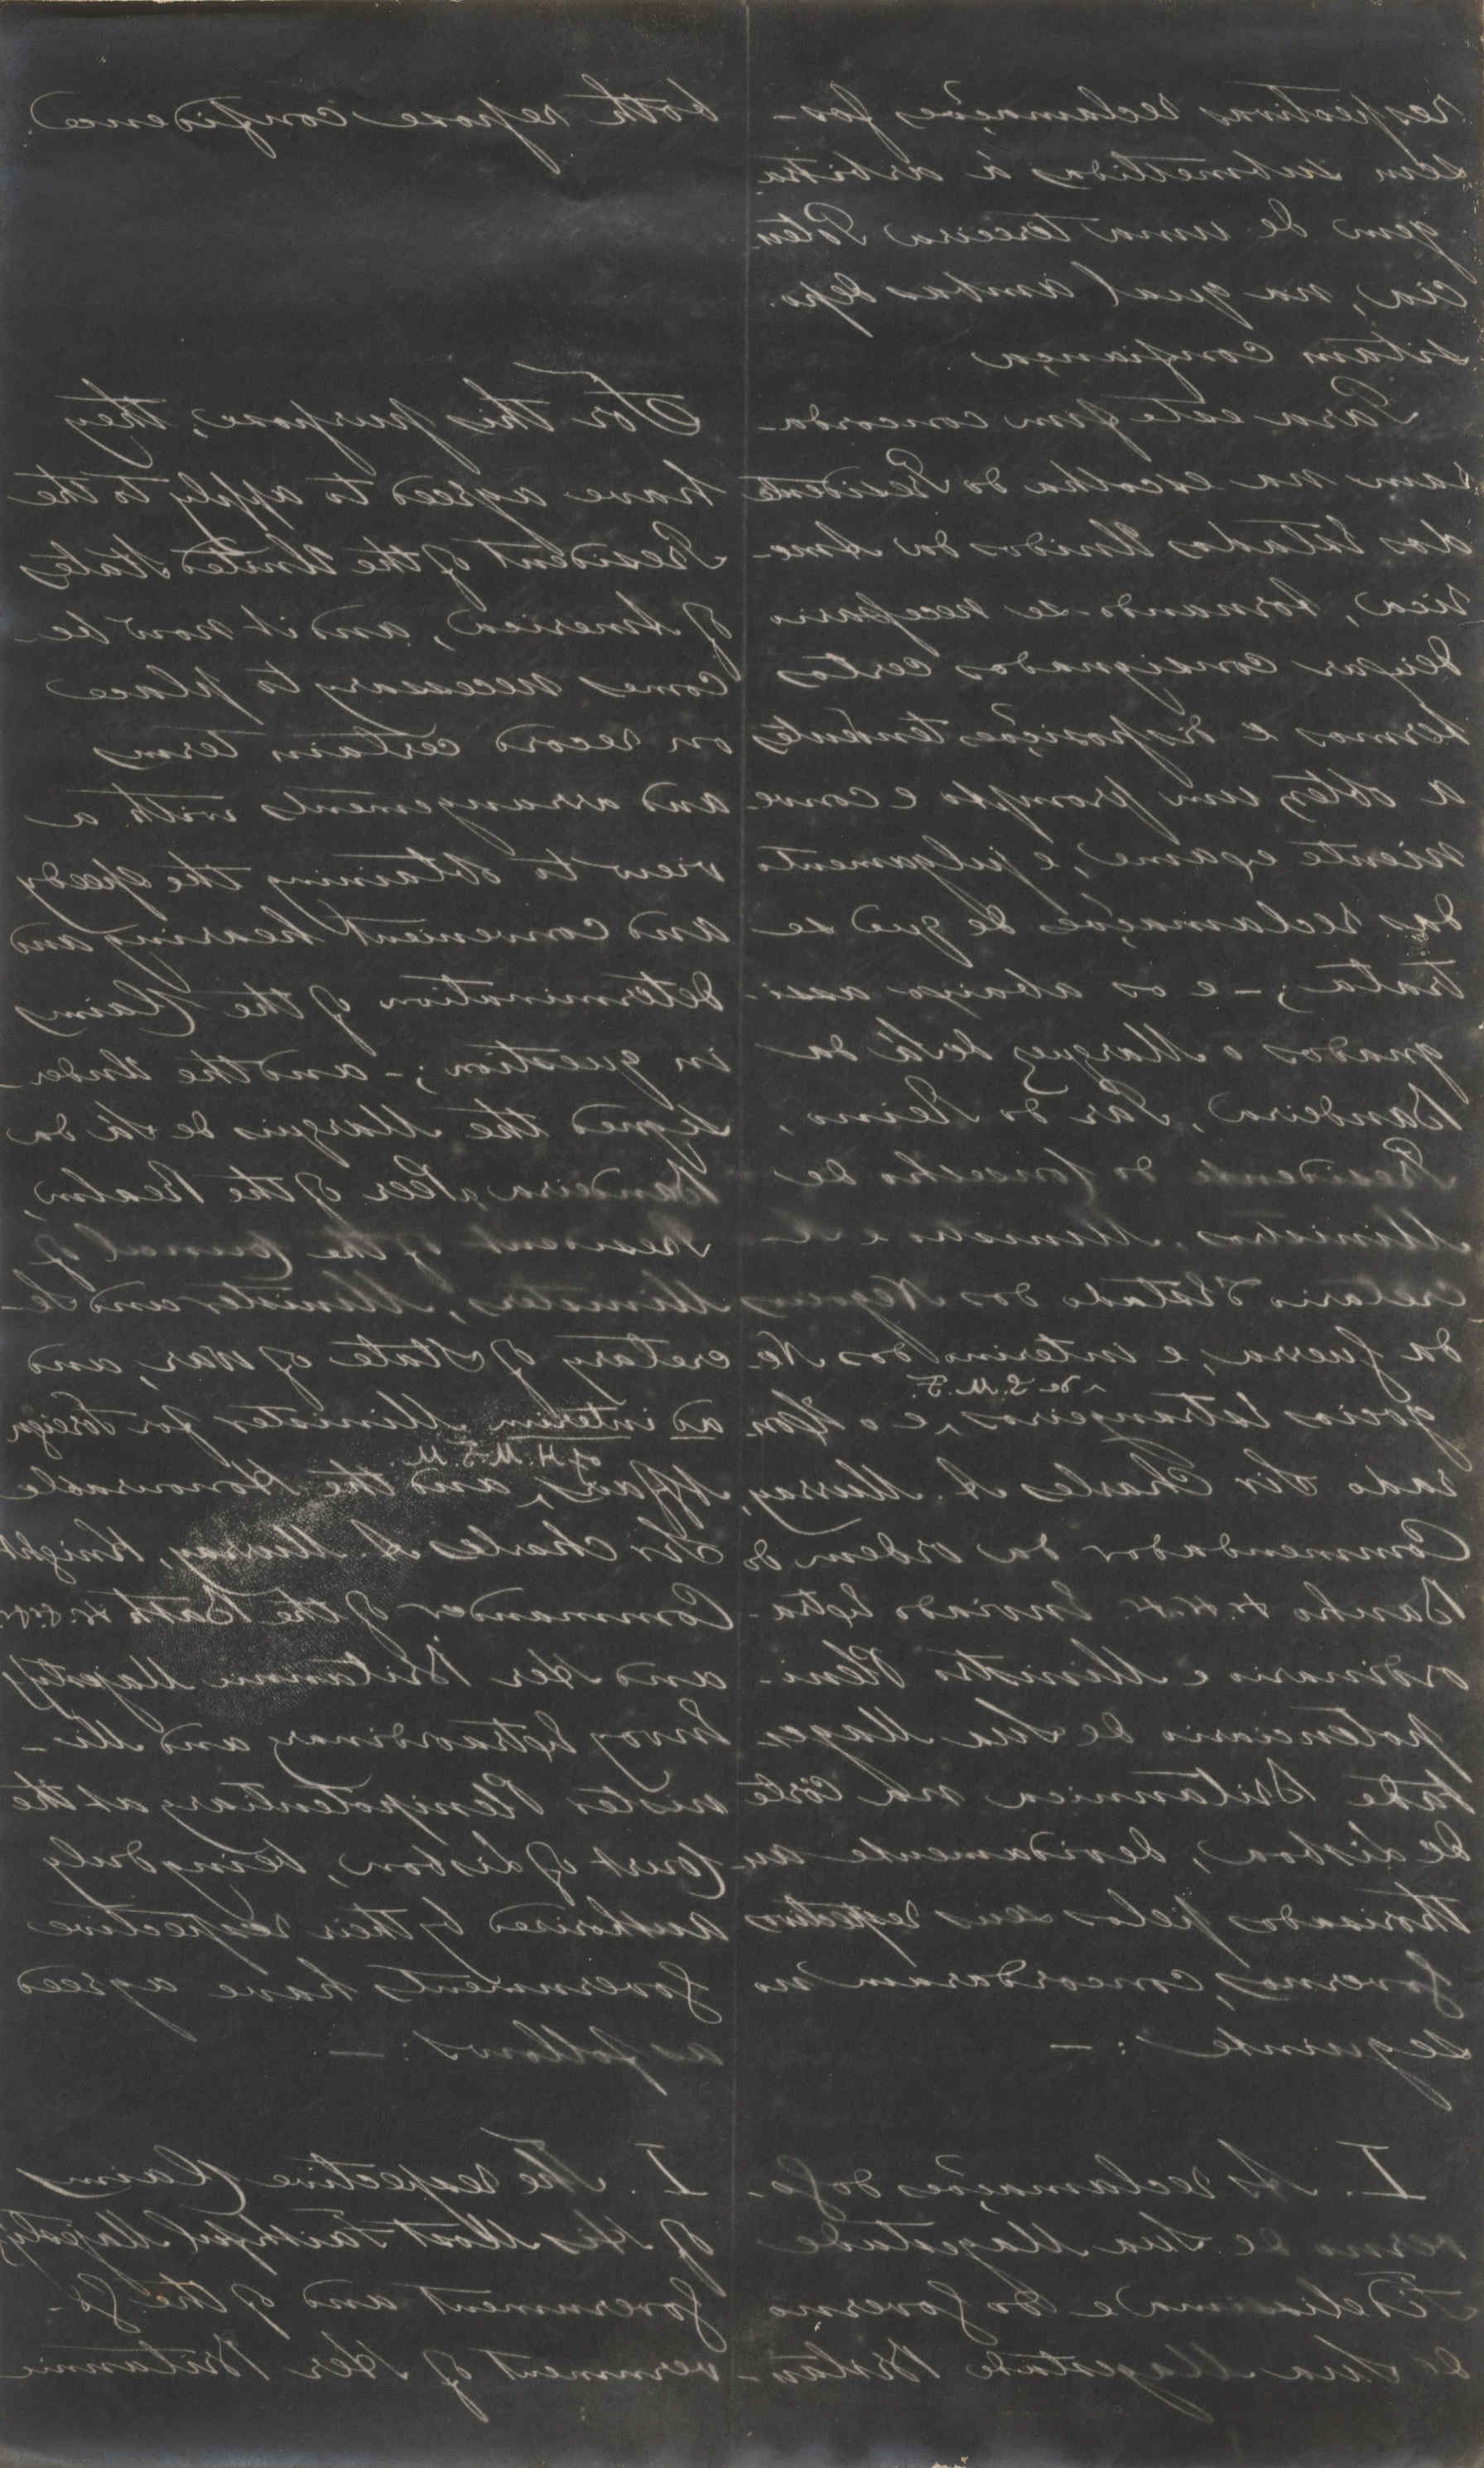 respectivas reclamações fos-
sem submettidas á arbitra-
gem de uma terceira Poten-
cia, na qual ambas depo-
sitam confiança
Para este fim concorda-
ram na escolha do Presidente
dos Estados Unidos da Ame-
rica, tornando-se necessario
deixar consignados certos
termos e disposições tendentes
a obter um prompto e conve-
niente exame, e julgamento
das reclamações de que se
trata; – e os abaixo assi-
gnados o Marquez de Sá da
Bandeira, Par do Reino,
Presidente do Conselho de
Ministros, Ministro e Se-
cretario d'Estado dos Negocios
da Guerra, e interino dos Ne-
gocios Estrangeiros, ^ de S. M. F. e o Hon-
rado Sir Charles A. Murray,
Commendador da ordem do
Banho &c. &c. &c. Enviado Extra-
ordinario e Ministro Pleni-
potenciario de Sua Mages-
tade Britannica na Côrte
de Lisboa, devidamente au-
thorisados pelos seus respectivos
Governos, concordaram no
seguinte: –
I. As reclamações do Go-
verno de Sua Magestade
Fidelissima e do Governo
de Sua Magestade Britan-
both repose confidence
For this purpose, they
have agreed to apply to the
President of the United States
of America, and it now be-
comes necessary to place
on record certain terms
and arrangements with a
view to obtaining the speedy
and convenient hearing and
determination of the Claims
in question; – and the Under-
signed the Marquis de Sá da
Bandeira, a Peer of the Realm,
President of the Council of
Ministers, Minister and Se-
cretary of State of War, and
ad interim Minister for Foreign
Affairs, ^ of H. M. F. M. and the Honourable
Sir Charles A Murray, Knight
Commander of the Bath &c. &c. &c.
and Her Britannic Majesty's
Envoy Extraordinary and Mi-
nister Plenipotentiary at the
Court of Lisbon, being duly
authorised by their respective
Governments have agreed
as follows: –
I. The respective Claims
of His Most Faithful Majesty's
Government and of the Go-
vernment of Her Britannic